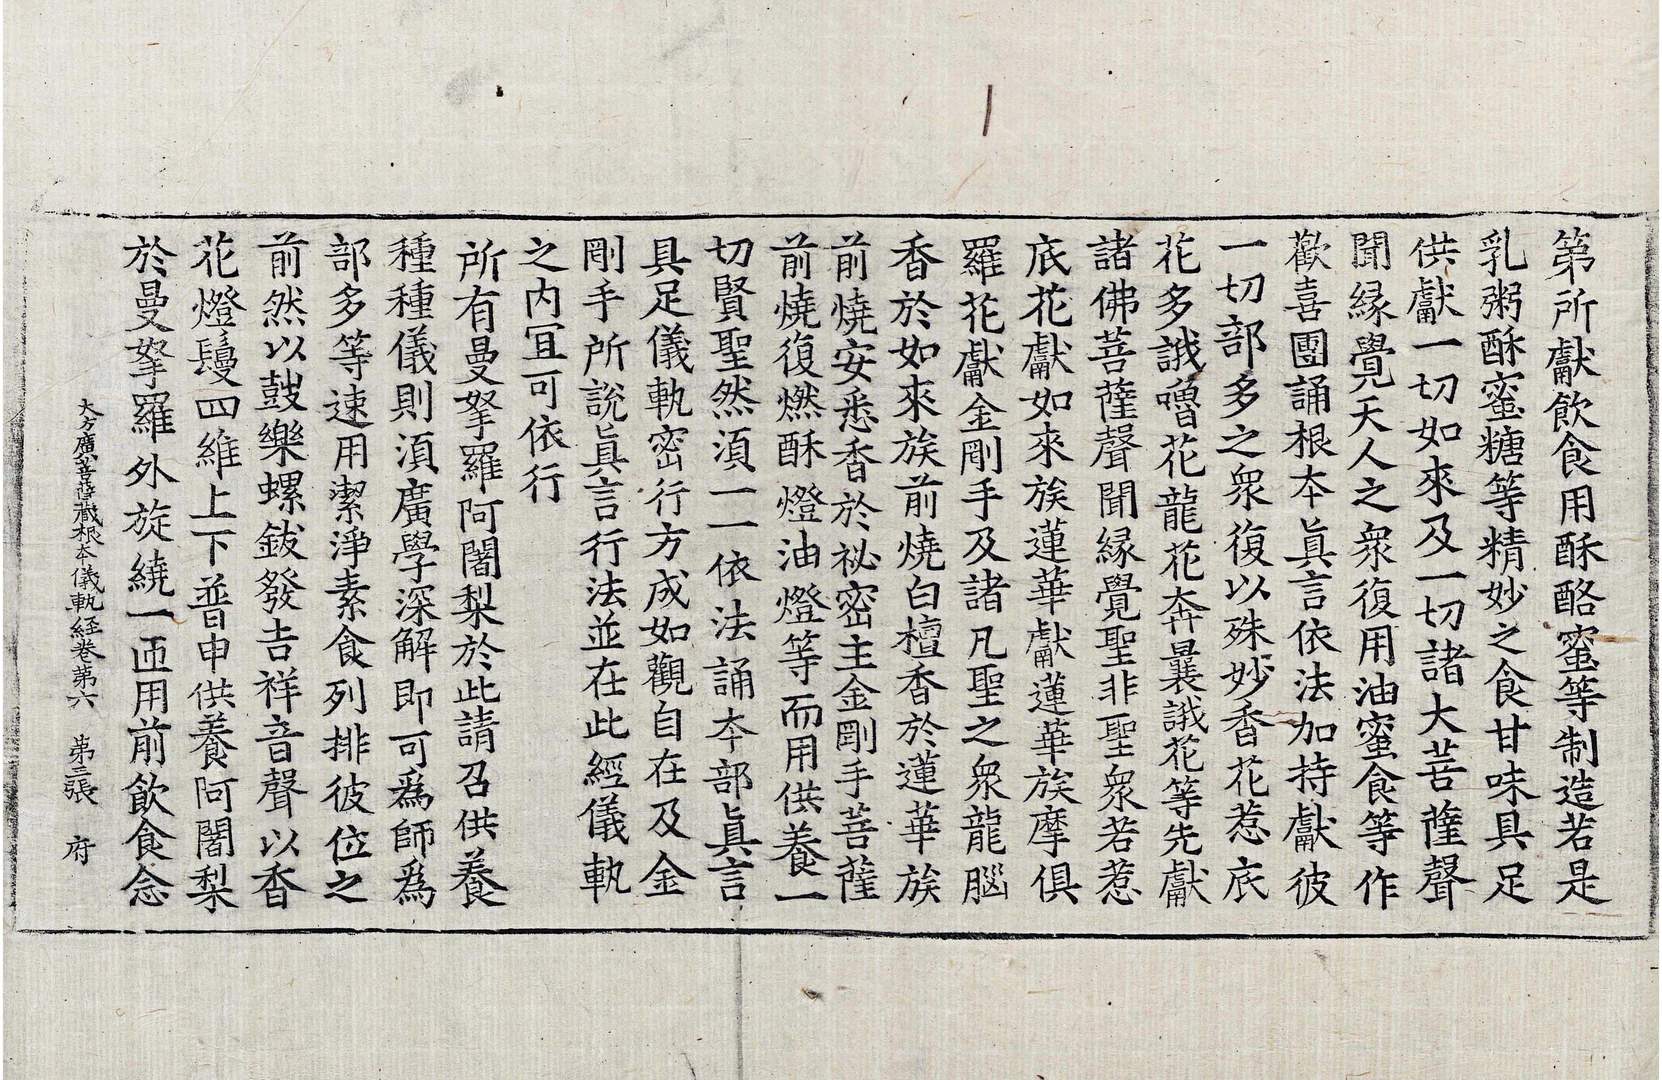 第所獻飲食用酥酪蜜等制造若是
乳粥酥蜜糖等精妙之食甘味具足
供獻一切如來及一切諸大菩薩聲
聞縁覺天人之衆復用油蜜食等作
歡喜團誦根本眞言依法加持獻彼
一切部多之衆復以殊妙香花惹底
花多誐嚕花龍花奔曩誐花等先獻
諸佛菩薩聲聞縁覺聖非聖衆若惹
底花獻如來族蓮華獻蓮華族摩俱
羅花獻金剛手及諸凡聖之衆龍腦
香於如來族前燒白檀香於蓮華族
前燒安悉香於祕密主金剛手菩薩
前燒復燃酥燈油燈等而用供養一
切賢聖然須一一依法誦本部眞言
具足儀軌密行方成如觀自在及金
剛手所說眞言行法並在此經儀軌
之内冝可依行
所有曼拏羅阿闍梨於此請召供養
種種儀則須廣學深解即可爲師爲
部多等速用潔淨素食列排彼位之
前然以鼓樂螺鈸發吉祥音聲以香
花燈鬘四維上下普申供養阿闍梨
於曼拏羅外旋繞一匝用前飲食念
大方廣菩薩藏根本儀軌経卷第六　第三張　府